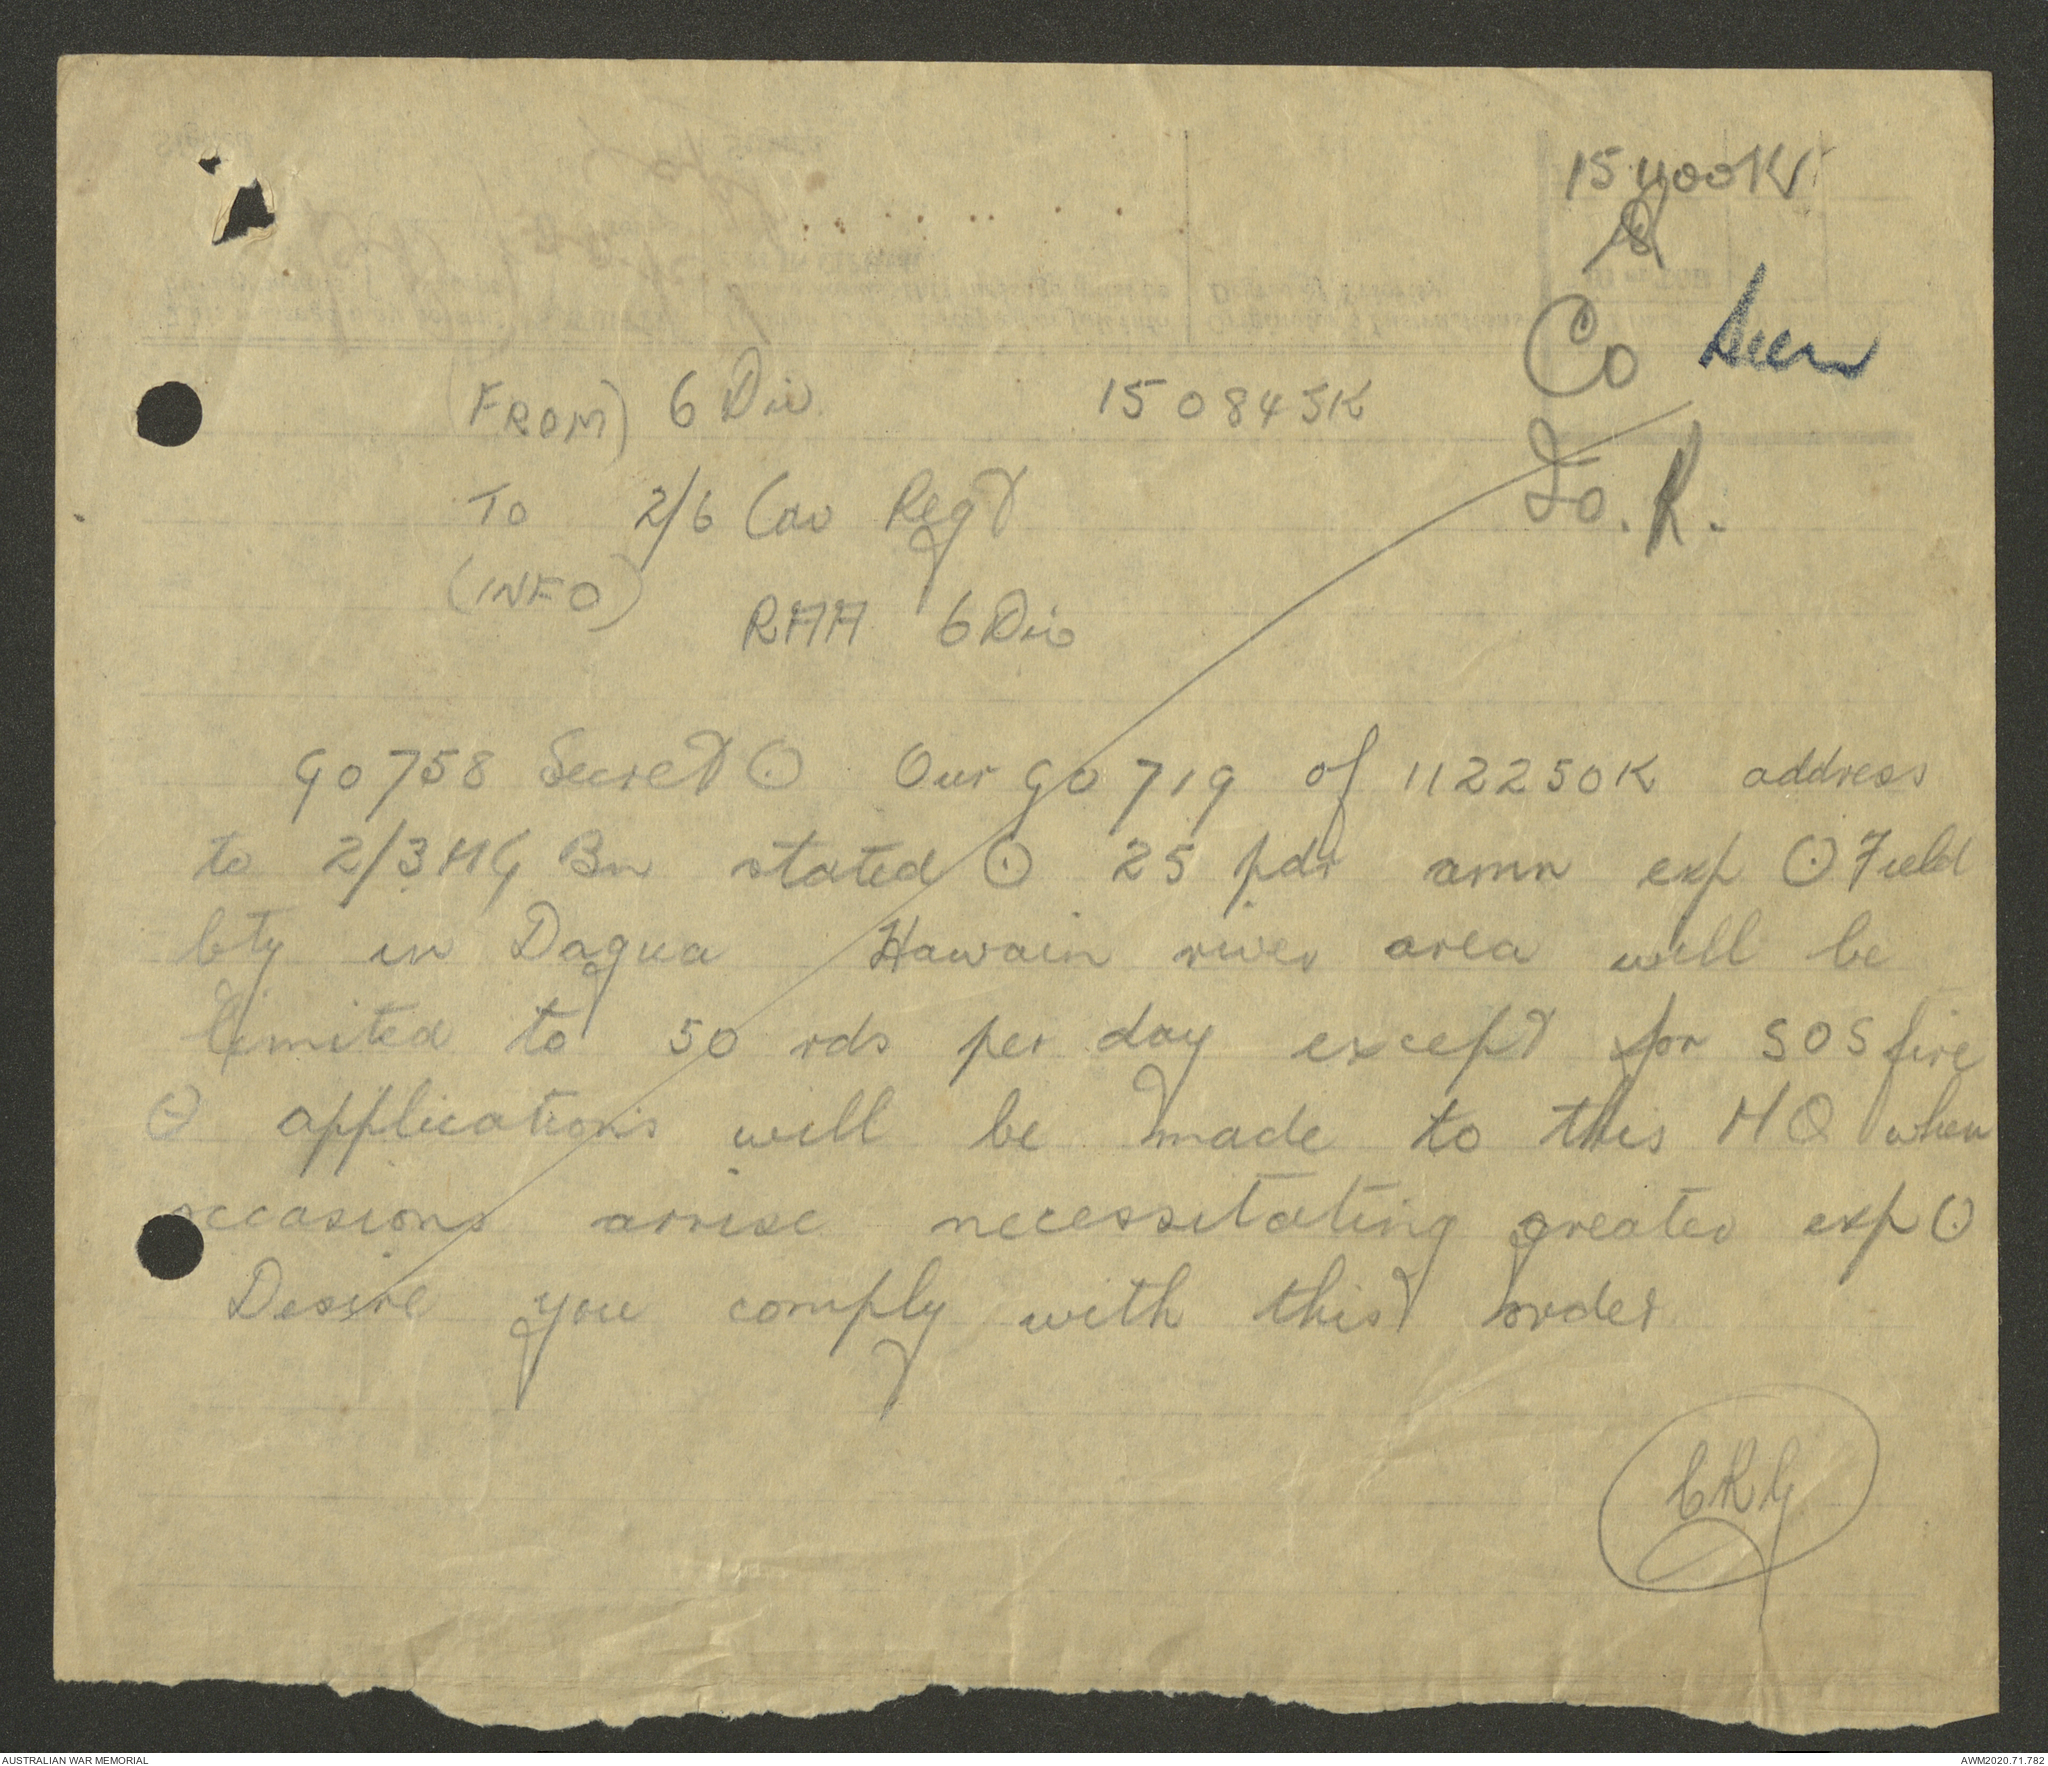 151100K
Co seen
Io. R.
(FROM) 6 Div 150845K
To 2/6 Cav Regt
(INFO)
RAA 6 Div
GO758 Secret ⊙ Our GO 719 of 112250K address
to 2/3 MG Bn stated ⊙ 25 pdr amn exp ⊙ Field
bty in Dagua Hawain river area will be
limited to 50 rds per day except for SOS fire
⊙ applications will be made to this HQ when
occasions arrise necessitating greater exp ⊙
Desire you comply with this order
CRG
AUSTRALIAN WAR MEMORIAL
AWM2020.71.782